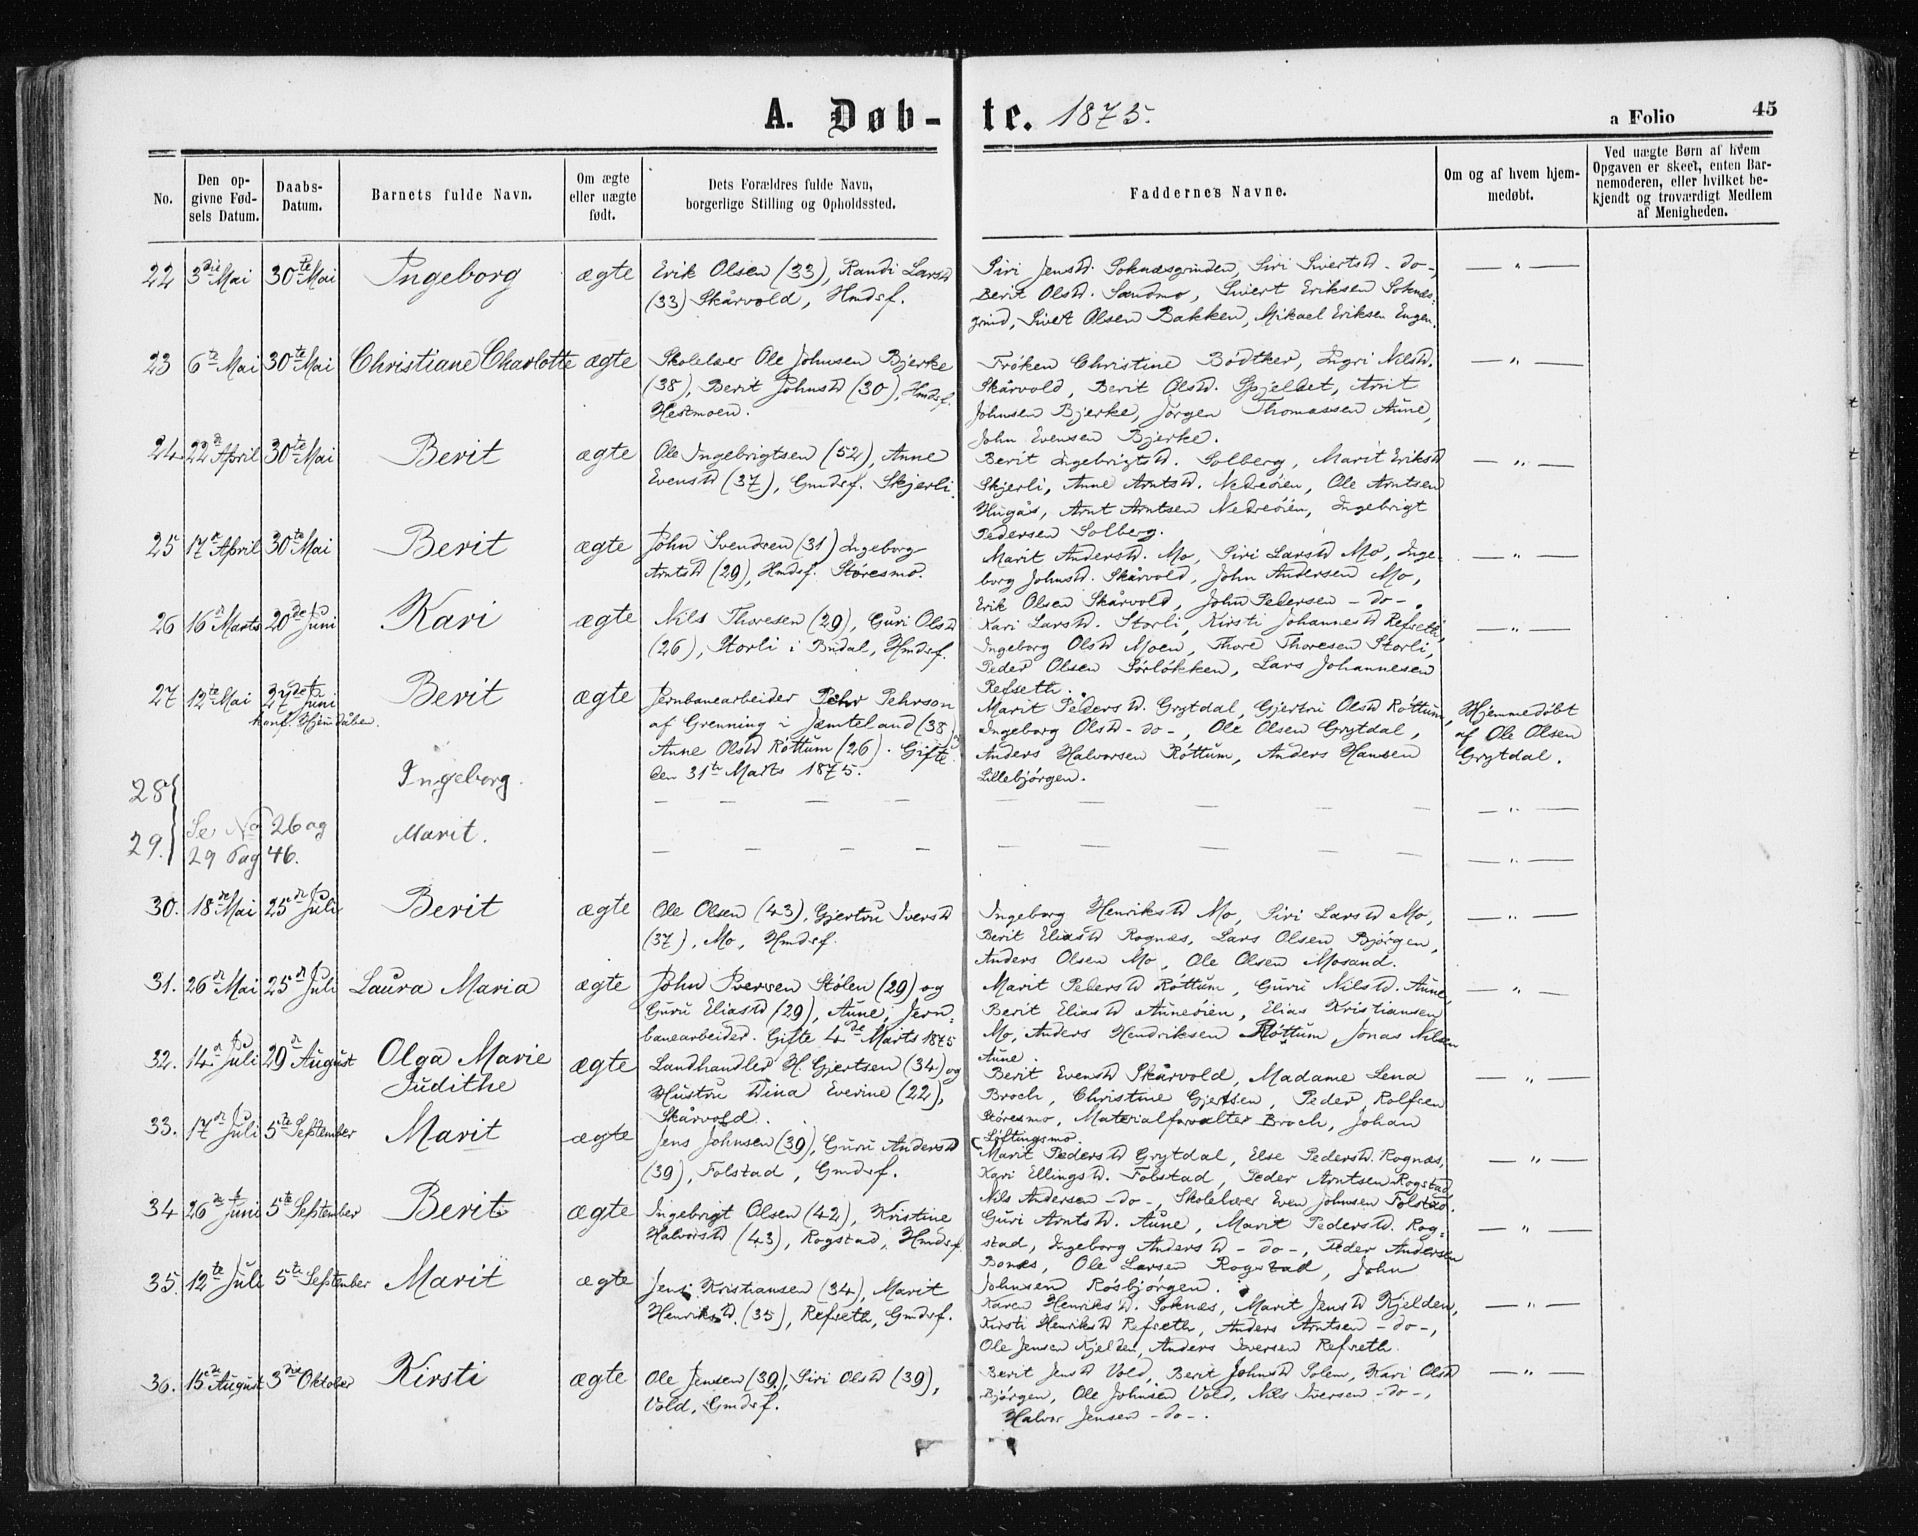 A. Døb- te. 1875.
a Folio 45
No.
Den op-
givne Fød-
sels Datum.
Daabs-
Datum.
Barnets fulde Navn.
Om ægte
eller uægte
født.
Dets Forældres fulde Navn,
borgerlige Stilling og Opholdssted.
Faddernes Navne.
Om og af hvem hjem-
medøbt.
Ved uægte Børn af hvem
Opgaven er skeet, enten Bar-
nemoderen, eller hvilket be-
kjendt og troværdigt Medlem
af Menigheden.
22 3die Mai 30te Mai Ingeborg ægte
Erik Olsen (33), Randi Larsd
(33) Skårvold, Hmdsf.
Siri Jensd. Soknæsgrinden, Siri Sivertsd -do-
Berit Olsd. Sandmo, Sivert Eriksen Soknæs-
grind, Sivert Olsen Bakken, Mikael Eriksen Engen.
— " —
23 6te Mai 30te Mai Christiane Charlotte ægte
Skolelær Ole Johnsen Bjerke
(38), Berit Johnsd (30), Hmdsf.
Hestmoen.
Frøken Christine Bödtker, Ingri Nilsd.
Skårvold, Berit Olsd. Gpjeldet, Arnt
Johnsen Bjerke, Jörgen Thomassen Aune,
John Evensen Bjerke.
— " —
24. 22d April 30te Mai Berit ægte
Ole Ingebrigtsen (52), Anne
Evensd (37), Gmdsf. Skjerli.
Berit Ingebrigtsd. Solberg, Marit Eriksd
Skjerli, Anne Arntsd. Nedreöien, Ole Arntsen
Hugås, Arnt Arntsen Nedreöien, Ingebrigt
Pedersen Solberg.
— " —
25 17de April 30te Mai Berit ægte
John Svendsen (31) Ingeborg
Arntsd (29), Hmdsf. Störesmo.
Marit Andersd. Mo, Siri Larsd Mo, Inge-
borg Johnsd. Skårvold, John Andersen Mo,
Erik Olsen Skårvold, John Pedersen -do-.
— " —
26 16d Marts 20de Juni Kari ægte
Nils Thoresen (29), Guri Olsd
(26), Storli i Budal, Hmdsf.
Kari Larsd. Storli, Kirsti Johannesd Refseth,
Ingeborg Olsd Moen, Thore Thoresen Storli,
Peder Olsen Sörlökken, Lars Johannesen
Refseth.
— " —
27 12te Mai 27de Juni Berit ægte
konf. Hjemdåben.
Jernbanearbeider Pehr Pehrson
af Grenning i Jæmteland (38)
Anne Olsd Röttum (26). Gifte
den 31te Marts 1875.
Marit Pedersd. Grytdal, Gjertru Olsd Röttum,
Ingeborg Olsd -do-, Ole Olsen Grytdal,
Anders Halvorsen Röttum, Anders Hansen
Lillebjörgen.
Hjemmedöbt
af Ole Olsen
Grytdal.
28 Ingeborg.
— — — — — — — — — " —
Se No 26 og
29. Marit.
29 Pag 46.
— — — — — — — — — " —
30. 18de Mai 25d Juli Berit ægte
Ole Olsen (43), Gjertru Iversd
(37), Mo, Hmdsf.
Ingeborg Henriksd Mo, Siri Larsd Mo,
Berit Eliasd Rognæs, Lars Olsen Bjørgen,
Anders Olsen Mo, Ole Olsen Mosand.
— " —
31. 26d Mai 25d Juli Laura Maria ægte
John Iversen Stölen (29) og
Guru Eliasd (29), Aune, Jern-
banearbeider. Gifte 4de Marts 1875
Marit Pedersd Röttum, Guru Nilsd. Aune,
Berit Eliasd Auneöien, Elias Kristiansen
Mo, Anders Hendriksen Röttum, Jonas Nilsen
Aune.
— " —
32. 14d Juli 29d August Olga Marie
Judithe ægte
Landhandler H. Gjertsen (34) og
Hustru Dina Everine (22),
Skårvold.
Berit Evensd Skårvold, Madame Lena
Broch, Christine Gjertsen, Peder Rolfsen
Störesmo, Materialforvalter Broch, Johan
Löftingsmo.
— " —
33. 17d Juli 5te September Marit ægte
Jens Johnsen (39), Guru Andersd
(39), Folstad, Gmdsf.
Marit Pedersd Grytdal, Else Pedersd. Rognæs,
Kari Ellingsd. Folstad, Peder Arntsen Rogstad,
Nils Andersen -do-, Skolelærer Even Johnsen Folstad.
— " —
34 26de Juni 5te September Berit ægte
Ingebrigt Olsen (42), Kristine
Halvorsd (43), Rogstad, Hmdsf.
Guri Arntsd. Aune, Marit Pedersd. Rog-
stad, Ingeborg Andersd -do-, Peder Andersen
Bonæs, Ole Larsen Rogstad, John
Johnsen Rösbjörgen.
— " —
35. 12te Juli 5te September Marit ægte
Jens Kristiansen (34), Marit
Henriksd. (35), Refseth, Gmdsf.
Karen Henriksd. Soknæs, Marit Jensd Kjelden,
Kirsti Henriksd Refseth, Anders Arntsen -do-,
Ole Jensen Kjelden, Anders Iversen Refseth.
— " —
36. 15de August 3die Oktober Kirsti ægte
Ole Jensen (39), Siri Olsd (39),
Vold, Gmdsf.
Berit Jensd Vold, Berit Johnsd Solem, Kari Olsd
Björgen, Ole Johnsen Vold, Nils Iversen -do-,
Halvor Jensen -do-.
— " —